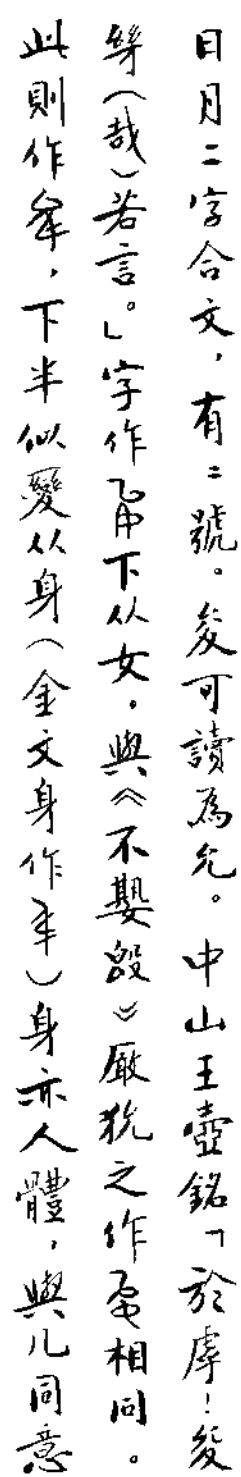 日月二字合文，有=號。夋可讀為允。中山王壺銘「於虖！夋
（哉）若言。」字作下从女。與《不𡢁𣪘》厰狁之作相同。
此則作，下半似變从身（金文身作）身亦人體，與儿同意